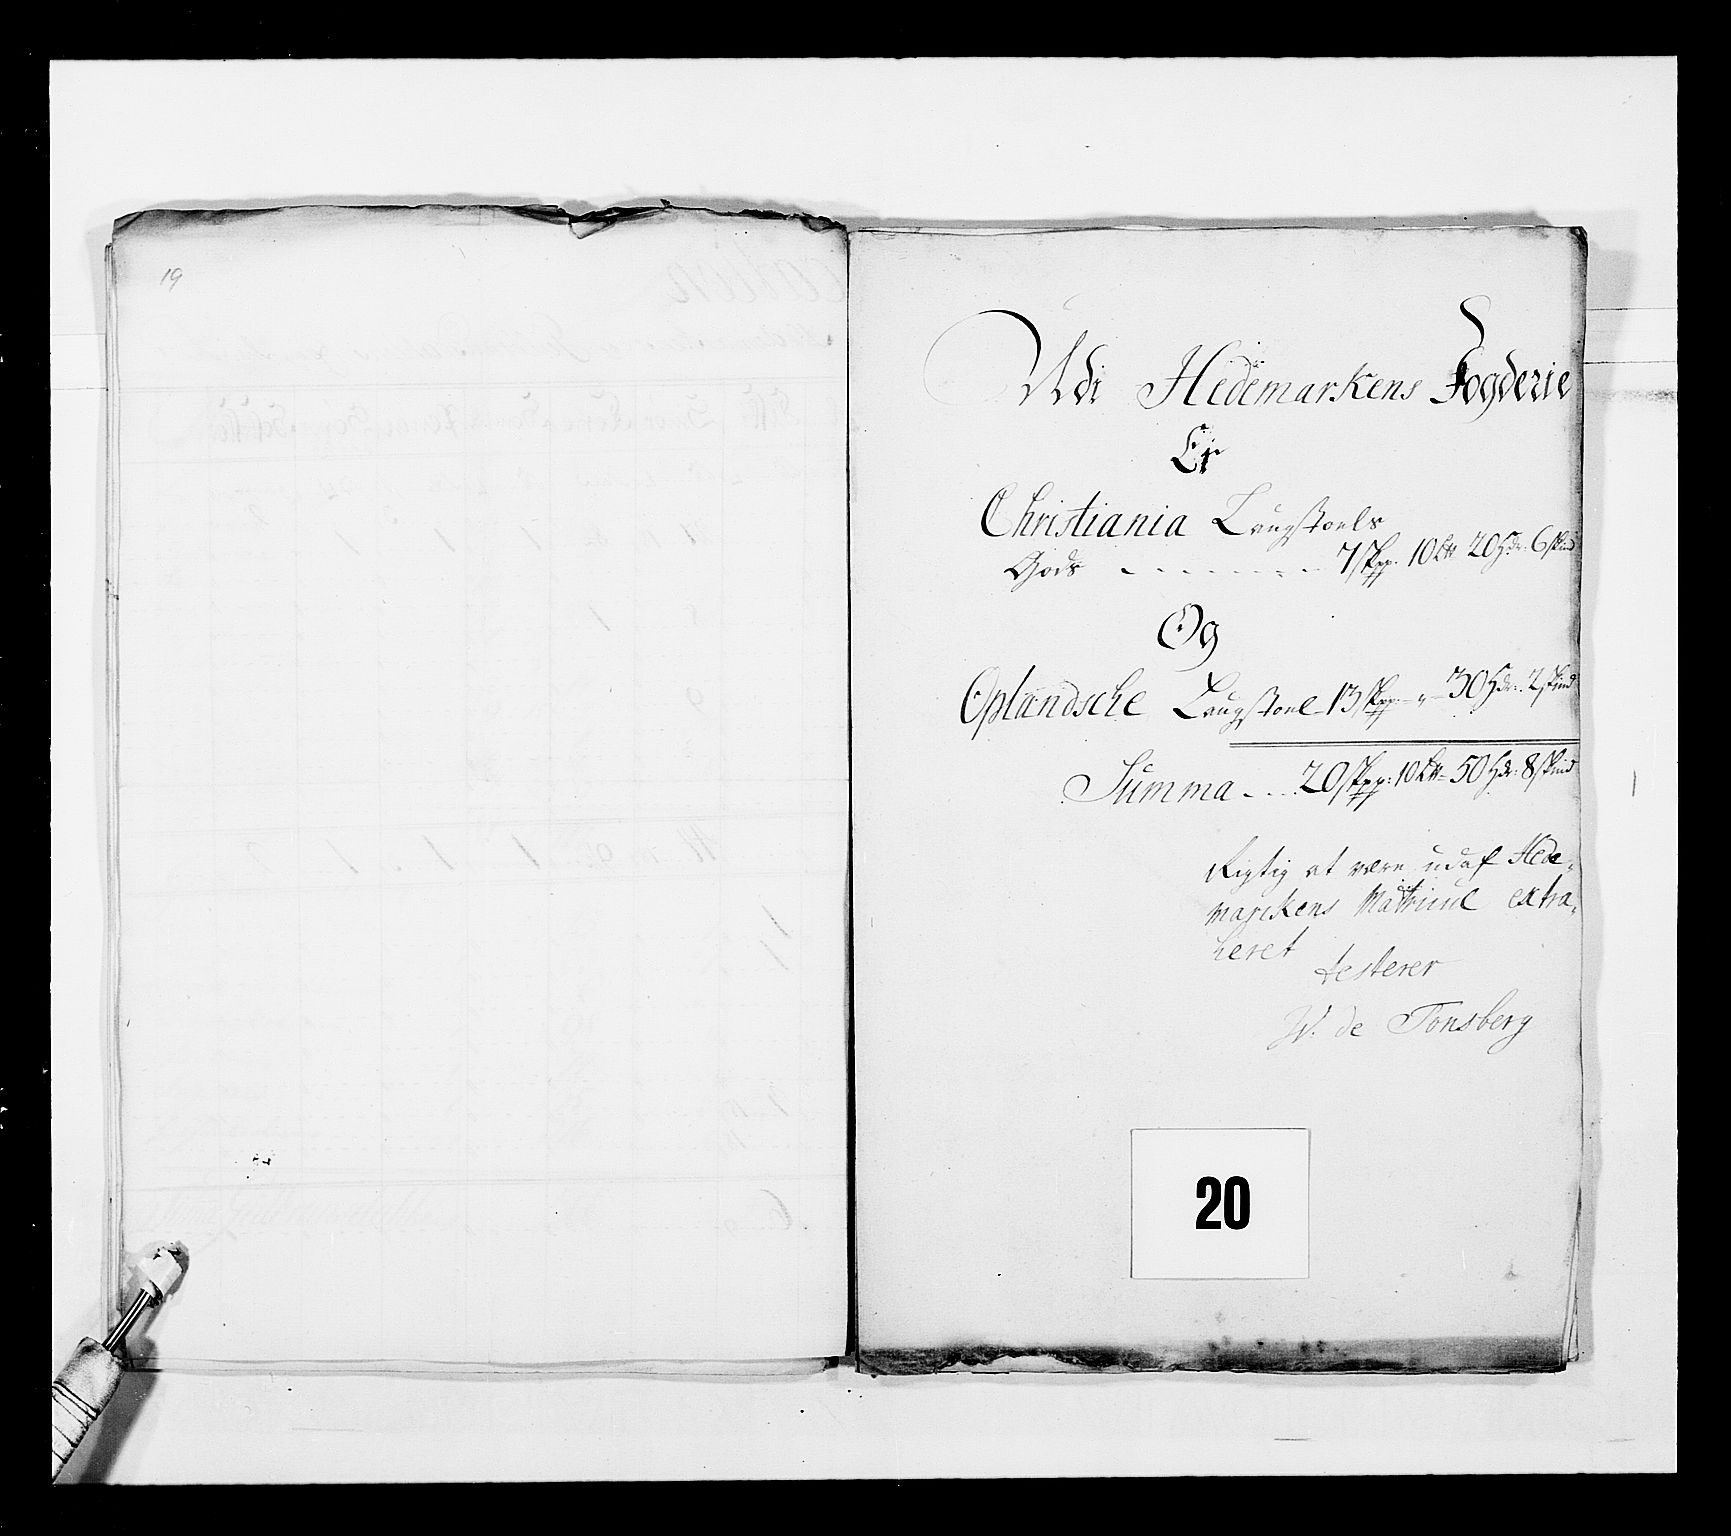 19
Udi Hedemarkens Fogderie
Er
Christiania Laugstoels
Gods - - - - - - - - 7 skpp. 10 L℔ 20 Hdr: 6 skind
Og
Oplandsche Laugstoel - 13 skpp: - „ - 30 Hdr: 2 skind
Summa - . . 20 skpp: 10 L℔ - 50 Hdr: 8 skind
Rigtig at være udaf Hede-
marckens Matricul extra-
heret
testerer
W. de Tonsberg
20